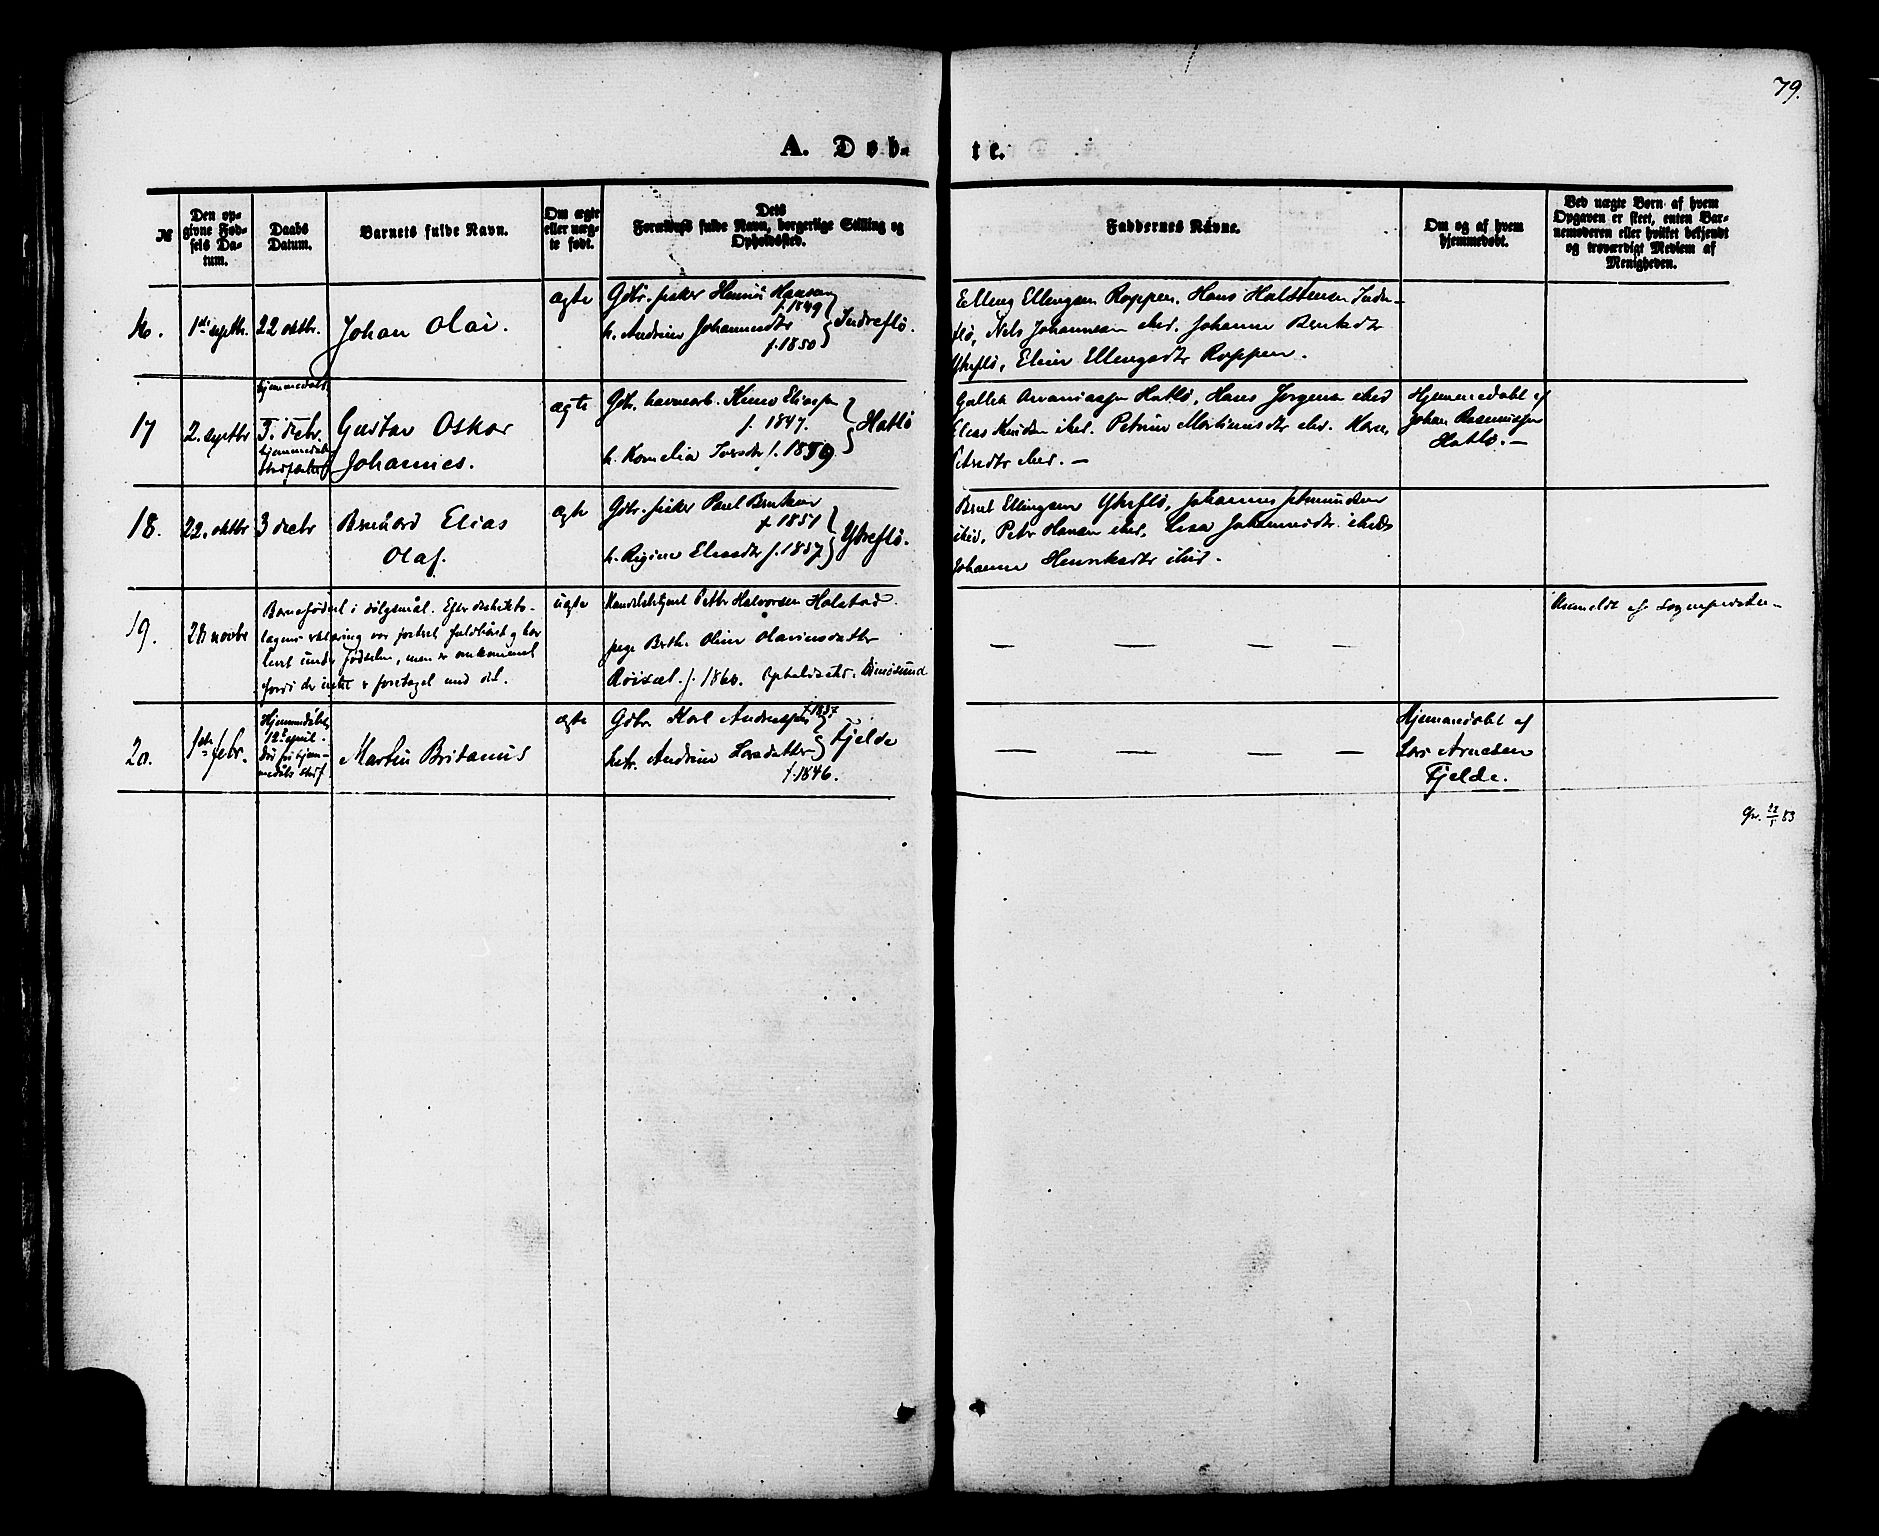 79.
A. Døb- te.
№
Den op-
givne Fød-
sels Da-
tum.
Daabs
Datum.
Barnets fulde Navn.
Om ægte
eller uæg-
te født.
Dets
Forældres fulde Navn, borgerlige Stilling og
Opholdssted.
Faddernes Navne.
Om og af hvem
hjemmedøbt.
Ved uægte Børn af hvem
Opgaven er skeet, enten Bar-
nemoderen eller hvilket bekjendt
og troværdigt Medlem af
Menigheden.
16.
1ste septbr.
22 oktbr.
Johan Olai.
ægte
Gdbr. fisker Hansen
f. 1849
h. Andrine Johannesdtr
f. 1850
Indreflø.
Elling Ellingsen Roppen. Hans Halstensen Indre-
flø, Nels Johannesen ibid. Johanne Bentsdtr
Ytreflø, Eline Ellingsdtr Roppen.
17
2. septbr
hjemmedøbt
decbr.
hjemmedåb
stadfæstet
Gustav Oskar
Johannes.
ægte
Gdbr. havnearb. Knut Eliassen
f. 1847.
h. Kornelia Iversdtr f. 1859
Hatlø
Hatlø, Hans Jørgensen ibid
Elias Knudsen ibid. Petrine Martinusdtr ibid. Karen
Petersdtr ibid. —
Hjemmedøbt af
Johan Rasmussen
Hatlø. —
18.
22. oktbr
3 decbr
Bernhard Elias
Olaf.
ægte
Gdbr. fisker Paul Bentsen
f. 1851
h. Regine Eliasdtr f. 1857
Ytreflø.
Bent Ellingsen Ytreflø, Johannes
ibid, Petr Hansen ibid, Johannesdtr. ibidt
Johanne Henriksdtr ibid.
19.
28 novbr
Barnefødsel i dølgsmål. Efter distrikts-
lægens erklæring var fostret fuldbåret og har
levet under fødselen, men er omkommet
fordi der intet er foretaget med det.
uægte
Handelsbetjent Petter Halvorsen Holstad.
pige Berthe Oline Olavinusdatter
Røisæt. f. 1860.
— — — —
Anmeldt af Sognepræsten —
20.
1ste febr.
Hjemmedøbt
12te april.
Død før hjem-
medåbs stadf
Martin Britanus
ægte
Gdbr. Karl Andreassen f. 1837
hstr. Andrine Larsdatter
f. 1846.
Fjelde
— — — —
Hjemmedøbt af
Lars Arnesen
Fjelde.
83